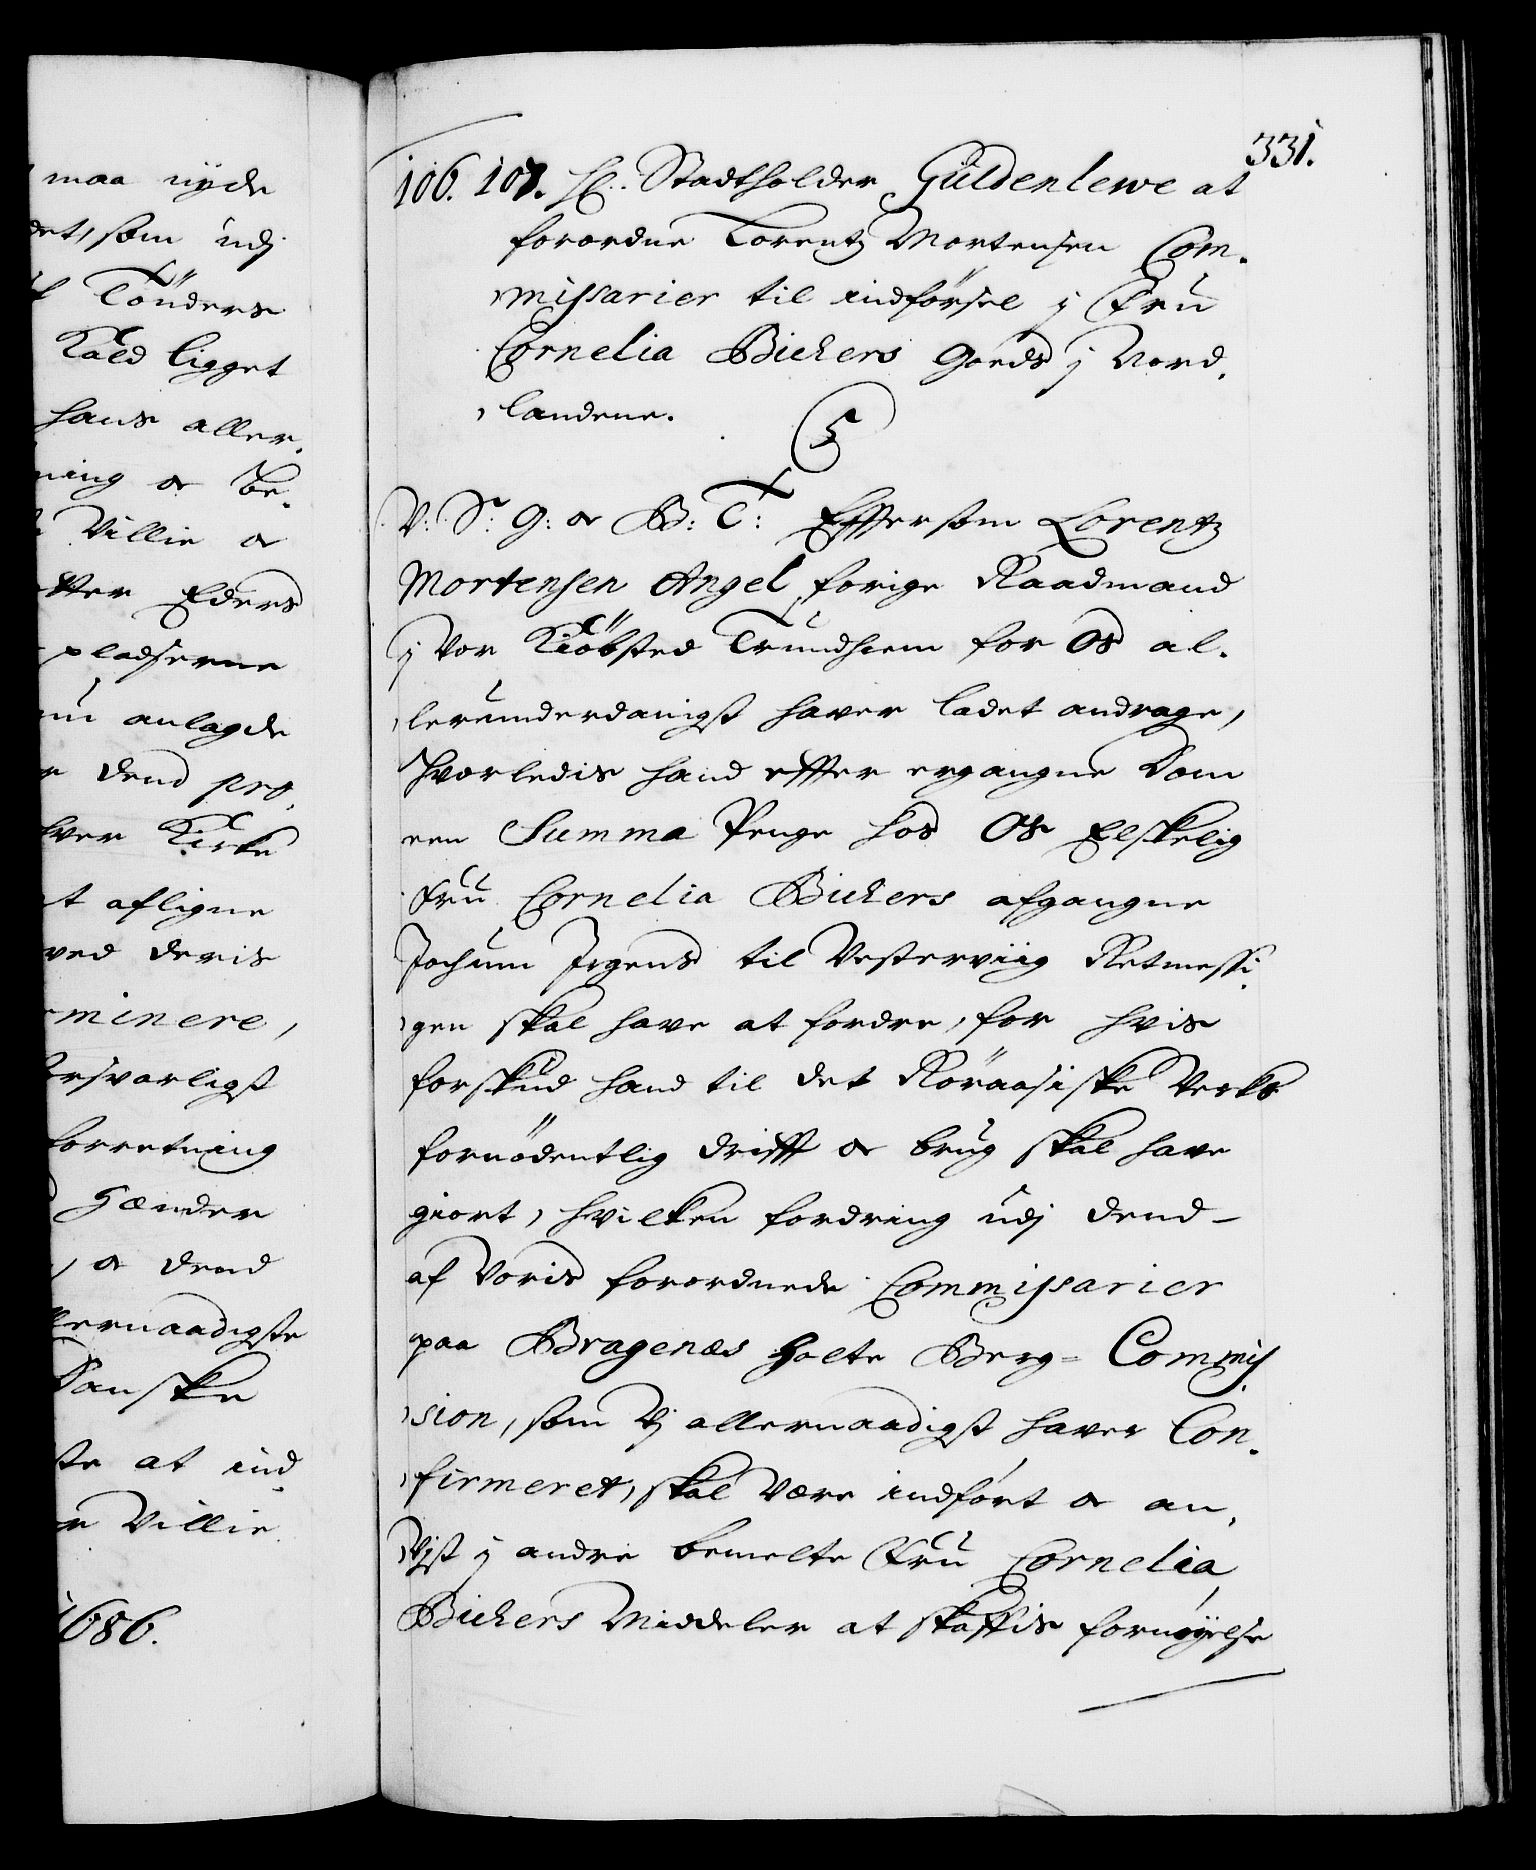 maa nyde
det, som udj
Tönders
Kald ligget
hans aller,
ning oc be,
Villie oc
etter Eders
pladserne
nu anlagde
dend pro,
hver Kirke
at afligne
ved deris
minere,
forsvarligst
forretning
Hænder
, oc dend
allernaadigste
Danske
ste at ind,
Villie
1686.
331.
106. 107. H. Stadtholder Güldenlewe at
forordne Lorentz Mortensen Com,
missarier til indförsel j Fru
Cornelia Bickers Goeds j Nord,
landene.
5
V: S: G: oc B: T: Effter som Lorentz
Mortensen Angel, forige Raadmand
j Vor Kiöbsted Trundhiem for Os al,
lerunderdanigst haver ladet andrage,
hvorledis hand effter ergangne Dom
een Summa Penge hos Os Elskelig
Fru Cornelia Bickers afgangne
Jochum Jrgens til Vesterviig Retmessi,
gen skal have at fordre, for hvis
forskud hand til det Röraasiske Verks
fornödentlig drifft oc brug skal have
giort, hvilken fordring udj dend
af Voris forordnede Commissarier
paa Bragenæs holte Berg-Commis,
sion, som Vj allernaadigst haver Con,
firmeret, skal være indfört oc an,
Vjst j andre bemelte Fru Cornelia
Bickers Middeler at skaffis fornøyelse